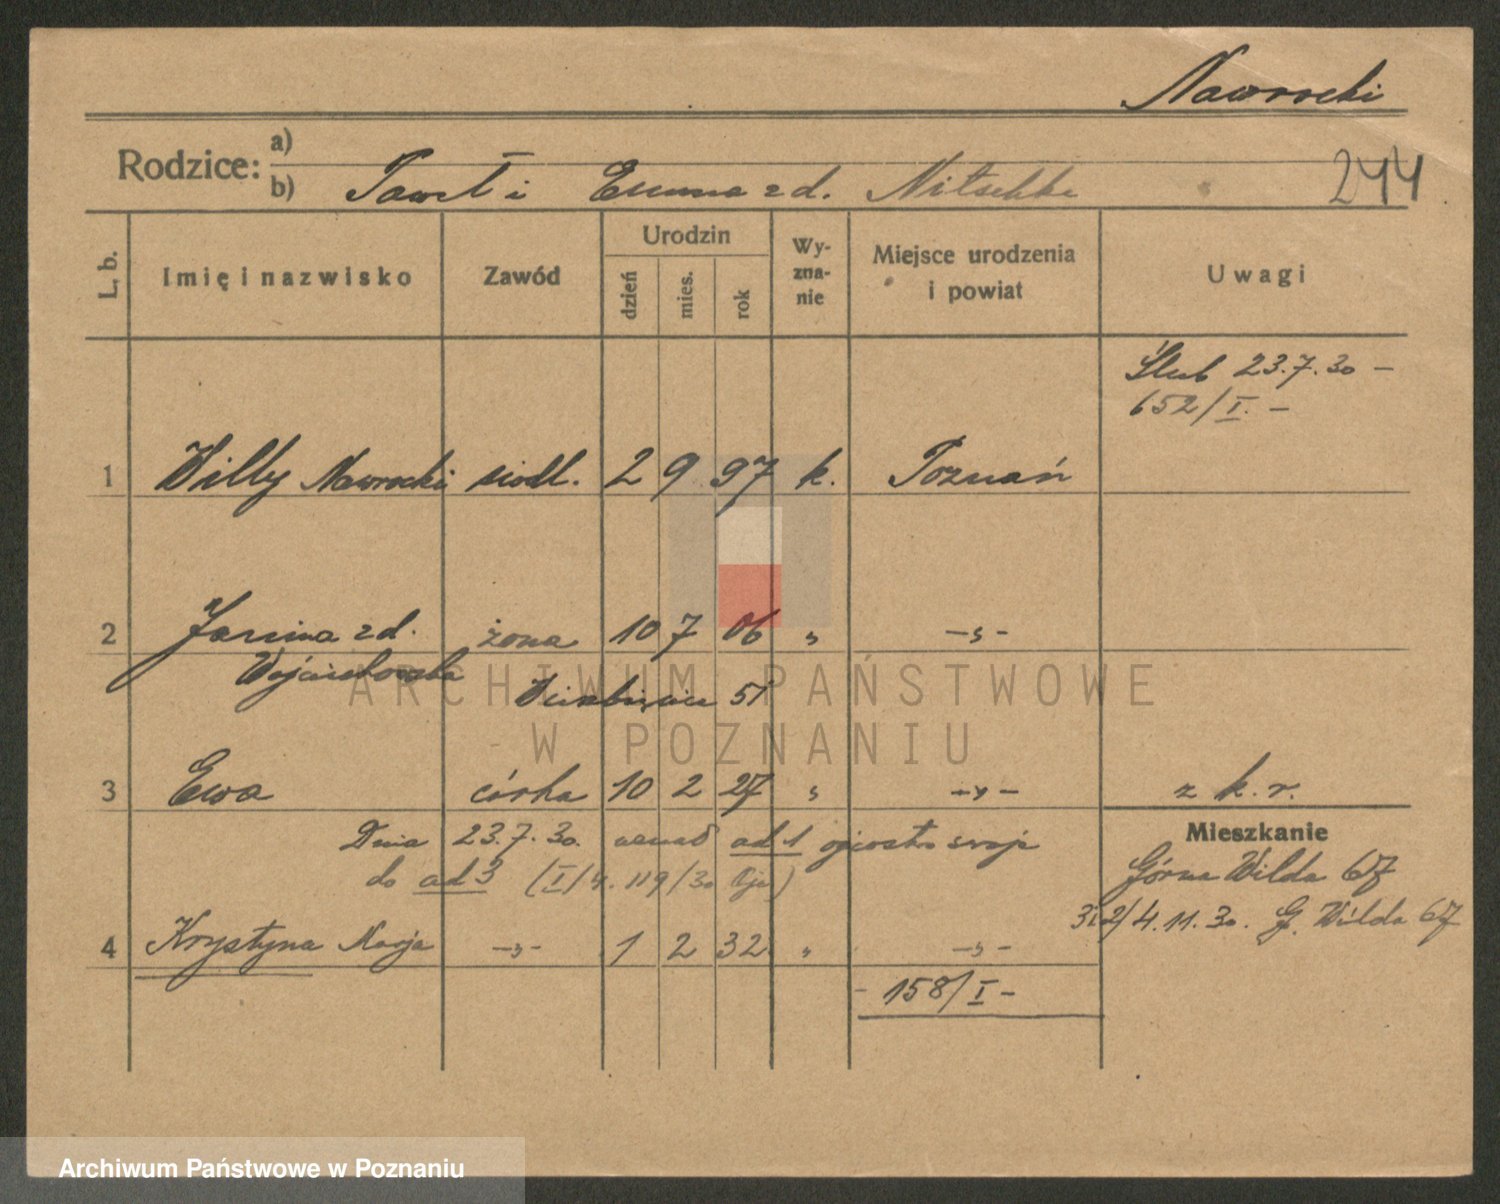 Nawrocki
Rodzice: a)
b) Paweł i Emma zd. Nitschke
244
L. b.
Imię i nazwisko
Zawód
Urodzin
dzień
mies.
rok
Wy-
zna-
nie
Miejsce urodzenia
i powiat
Uwagi
Ślub 23.7.30 –
652/I. –
1 Willy Nawrocki siodl. 2 9 97 k. Poznań
2 Janina zd. żona 10 7 06 „ –„–
Wojciechowska
51
3 Ewa córka 10 2 27 „ –„– z k. r.
Dnia 23.7.30. uznał ad 1 ojcostwo swoje
do ad 3 (I/4. 119/30 )
Mieszkanie
Górna Wilda 67
4.11.30. G. Wilda 67
4 Krystyna Marja –„– 1 2 32 „ –„–
- 158/I –
ARCHIWUM PAŃSTWOWE
W POZNANIU
Archiwum Państwowe w Poznaniu